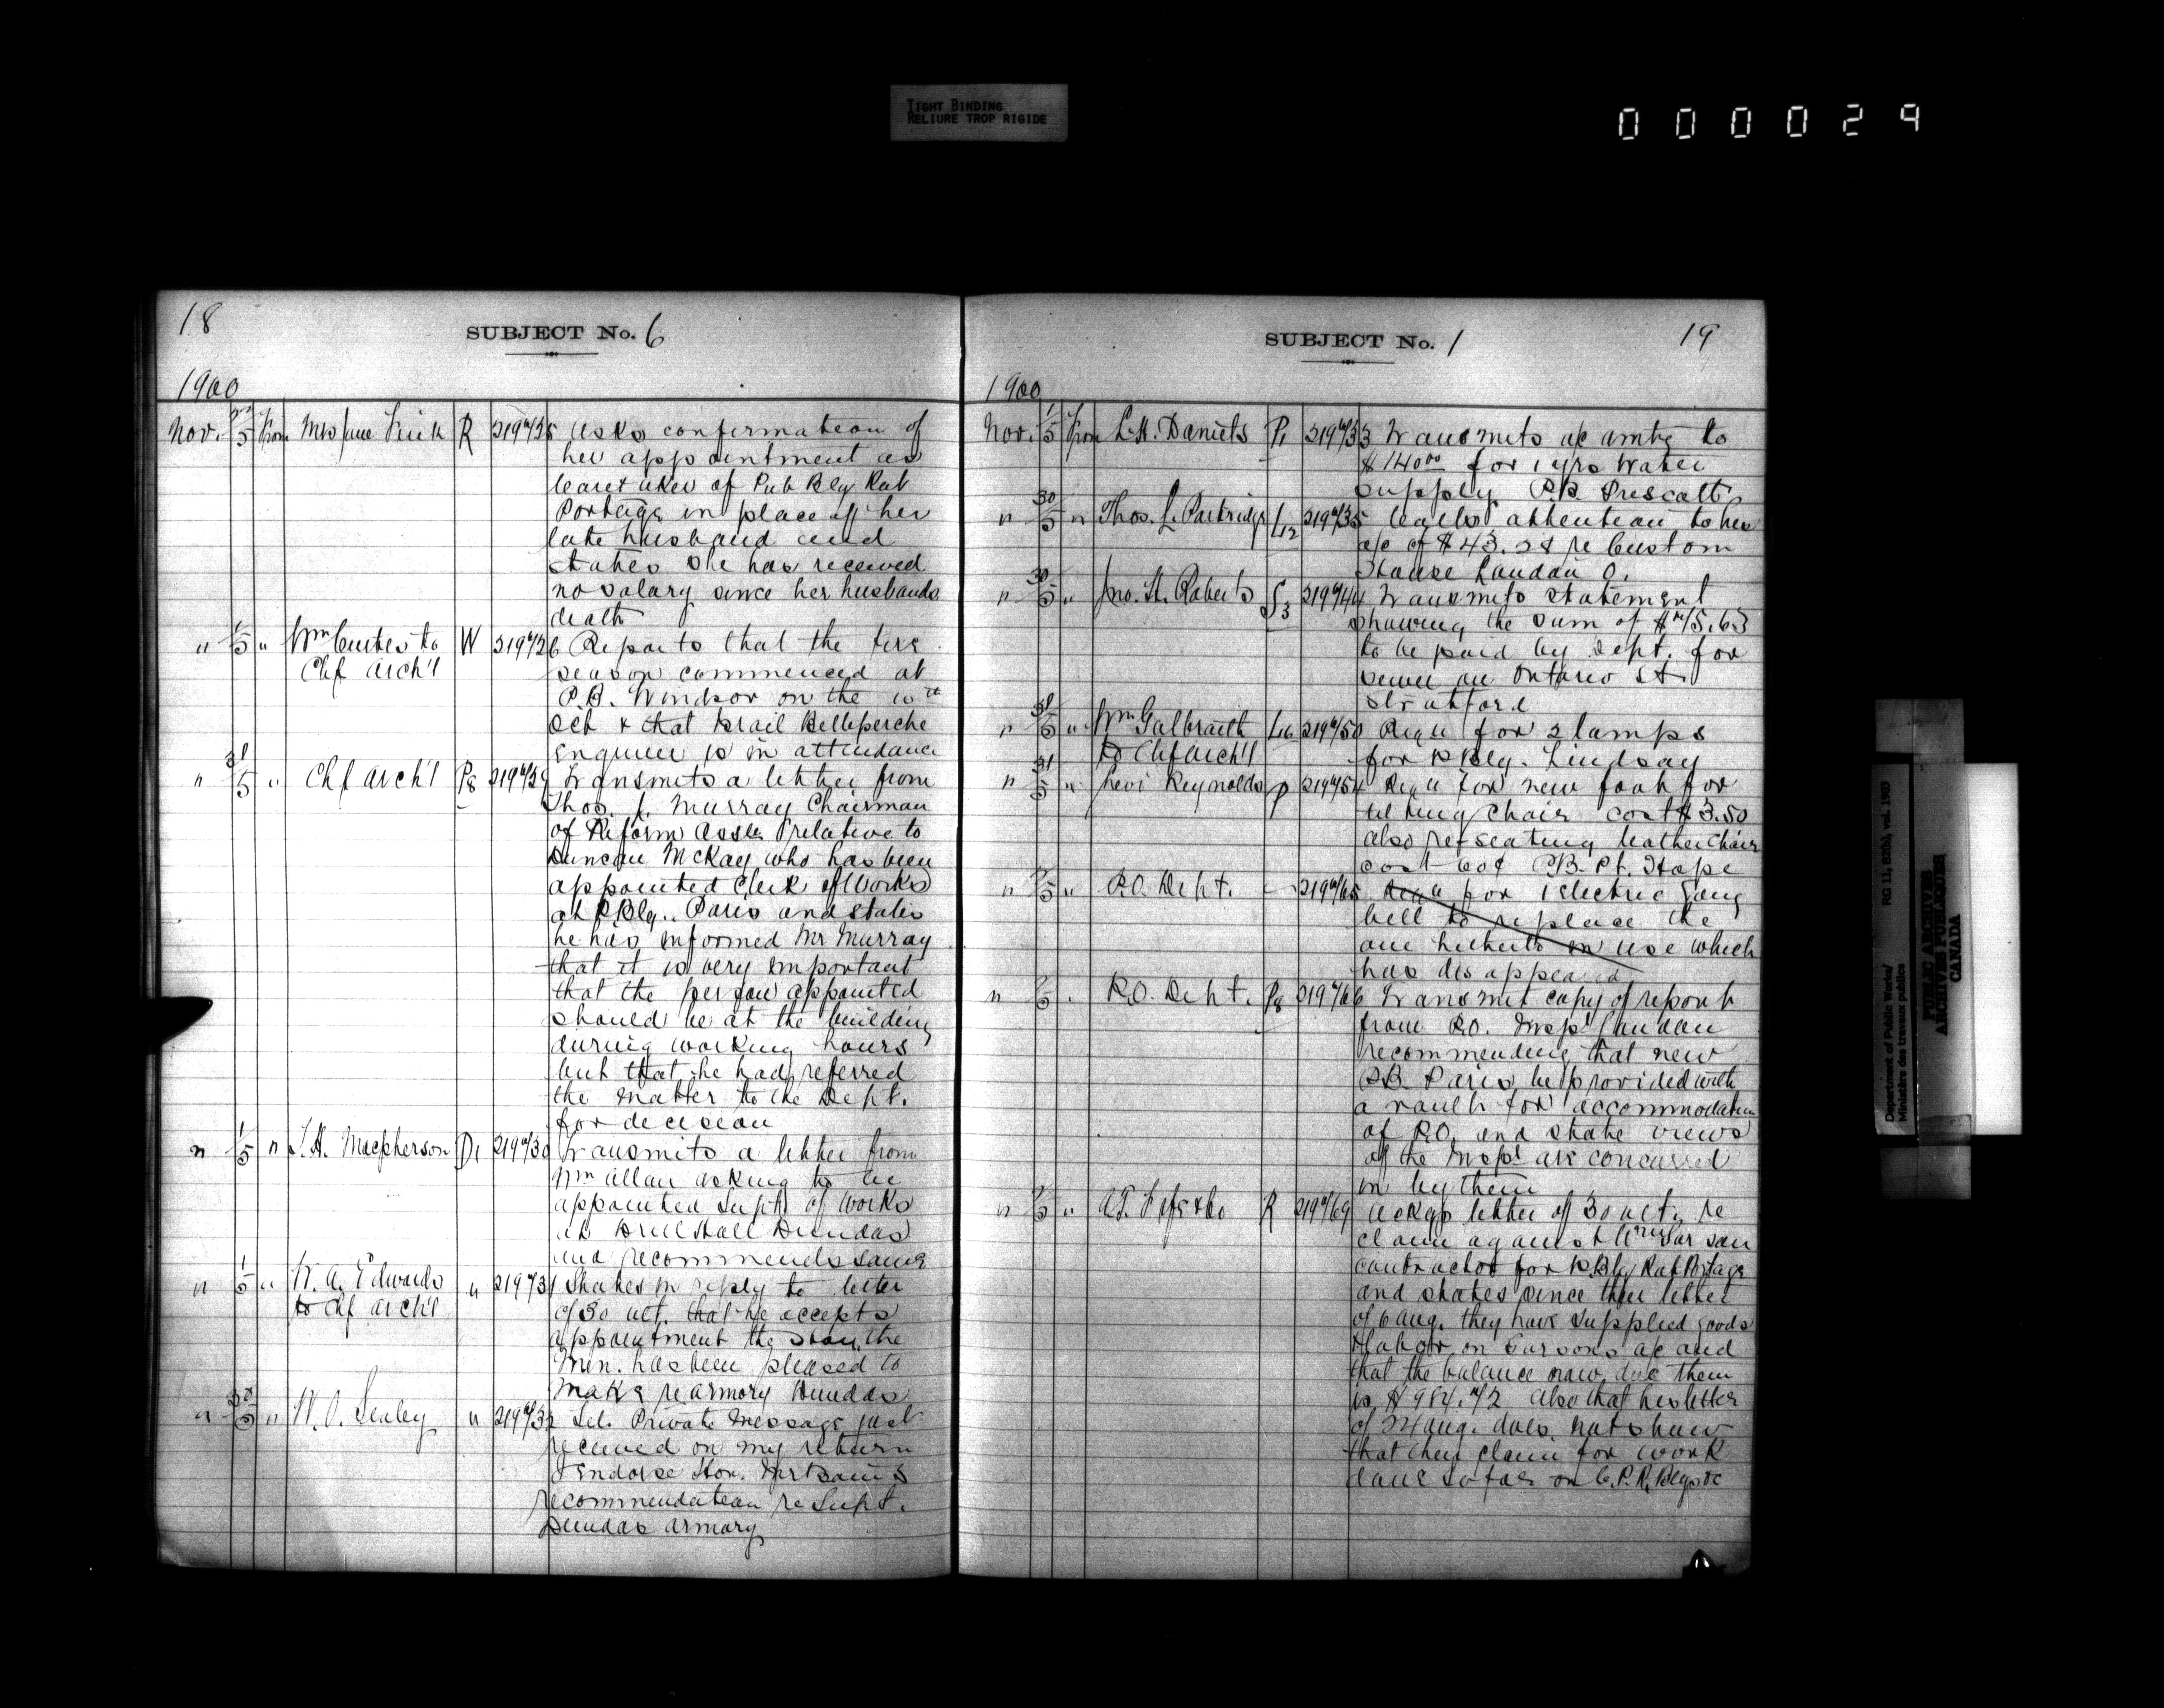 TIGHT BINDING
RELIURE TROP RIGIDE
000029
18
SUBJECT No. 6
1900
Nov. 5 From Mrs Jane R Asks confirmation of
her appointment as
Caretaker of Pub Bly Rat
Portage in place of her
late husband and
states she has received
no salary since her husbands
death
" 1/5 " Wm to W Reports that the fire
Chf Arch't season commenced at
P.B. Windsor on the
Oct & that Israil Belleperche
Engineer is in attendance
" 31/5 " Chf Arch't P8 Transmits a letter from
Thos. Murray Chairman
of Reform Assn relative to
Duncan McKay who has been
appointed Clerk of Works
at P Blg. Paris and states
he has informed Mr Murray
that it is very important
that the person appointed
should be at the building
during working hours
but that he had referred
the matter to the Dept.
for decision
" 1/5 " Macpherson D1 Transmits a letter from
Wm Allan asking to be
appointed Supt of Works
at Drill Hall Dundas
and recommends same
" 1/5 " W. A. Edwards " States in reply to letter
to Chf Arch't of 30 ult. that he accepts
appointment the Hon. the
Min. has been pleased to
make re armory Dundas
" 30/5 " W. O. Sealey " Tel. Private Message just
received on my return
I endorse Hon.
recommendation re Supt.
Dundas armory
SUBJECT No. 1
19
1900
Nov. 1/5 From L.H. Daniels P1 Transmits a/c amtg to
$140.00 for 1 yrs water
supply P.B. Prescott
" 30/5 " Thos. Partridge L12 Calls attention to his
a/c of $43.28 re Custom
House London O.
" 30/5 " Jno. H. Roberts S3 Transmits statement
showing the sum of
to be paid by Dept. for
sewer on Ontario St
Stratford
" 31/5 " Wm Galbraith L16 Requ for 2 lamps
to Chf Arch't for P Blg. Lindsay
" 31/5 " Levi Reynolds P Requ for new foot for
tilting chair cost $3.50
also re-seating leather chair
cost 60¢ P.B. Pt. Hope
" 5 " P.O. Dept. Requ for 1 Electric Gong
bell to replace the
one hitherto in use which
has disappeared
" 5 " P.O. Dept. P8 Transmit copy of report
from P.O. Inspr London
recommending that new
P.B. Paris be provided with
a vault for accommodation
of P.O. and state views
of the Inspr are concurred
in by them
" 5 " R Ackgs letter of 30 ult. re
claim against
contractor for P. Blg Rat Portage
and states since their letter
of 6 Aug. they have supplied goods
& labor on a/c and
that the balance now due them
is Also that his letter
of 24 Aug. does not show
that they claim for work
done so far on C.P.R. Blgs &c
Department of Public Works/
Ministère des travaux publics
RG 11, B2(b), vol. 1903
PUBLIC ARCHIVES
ARCHIVES PUBLIQUES
CANADA